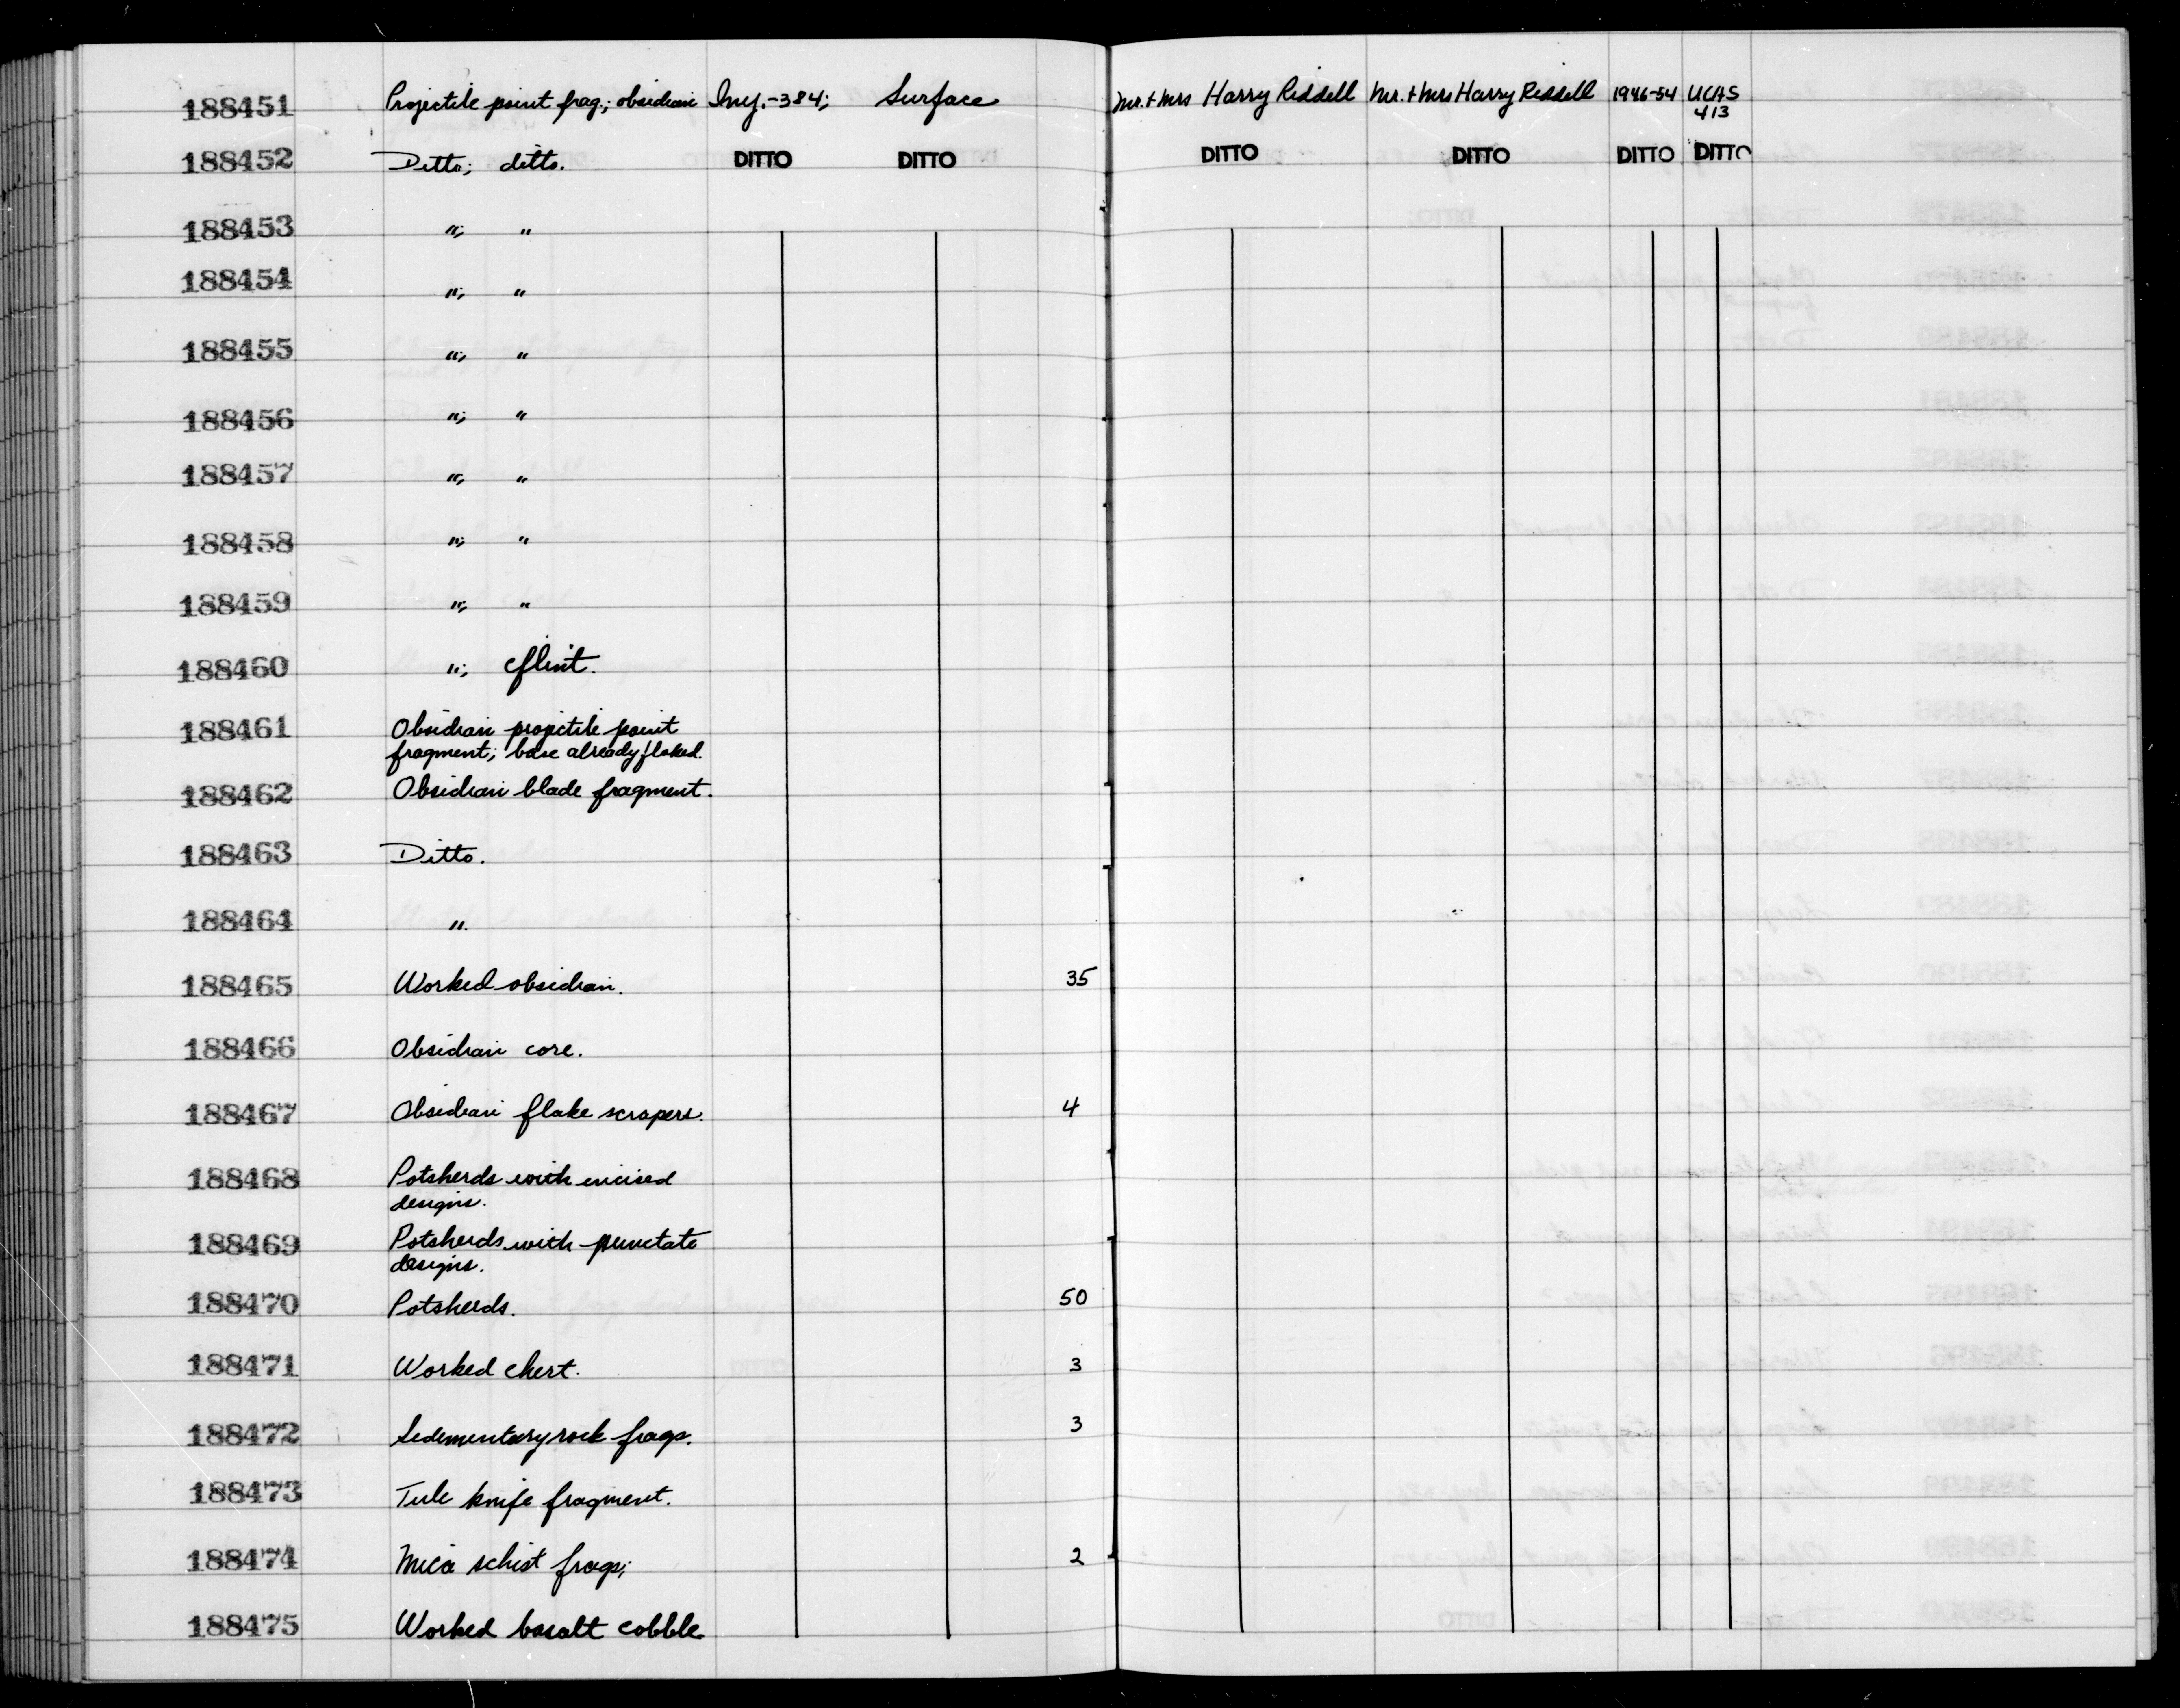 188451 Projectile point frag.; obsidian Iny.-384; Surface Mr. + Mrs Harry Riddell Mr. + Mrs Harry Riddell 1946-54 UCAS
413
188452 Ditto; ditto. DITTO DITTO DITTO DITTO DITTO DITTO
188453 "; "
188454 "; "
188455 "; "
188456 "; "
188457 "; "
188458 "; "
188459 "; "
188460 "; flint.
188461 Obsidian projectile point
fragment; base already flaked.
188462 Obsidian blade fragment.
188463 Ditto.
188464 ".
188465 Worked obsidian. 35
188466 Obsidian core.
188467 Obsidian flake scrapers. 4
188468 Potsherds with incised
designs.
188469 Potsherds with punctate
designs.
188470 Potsherds. 50
188471 Worked chert. 3
188472 Sedementary rock frags. 3
188473 Tule knife fragment.
188474 Mica schist frags; 2
188475 Worked basalt cobble